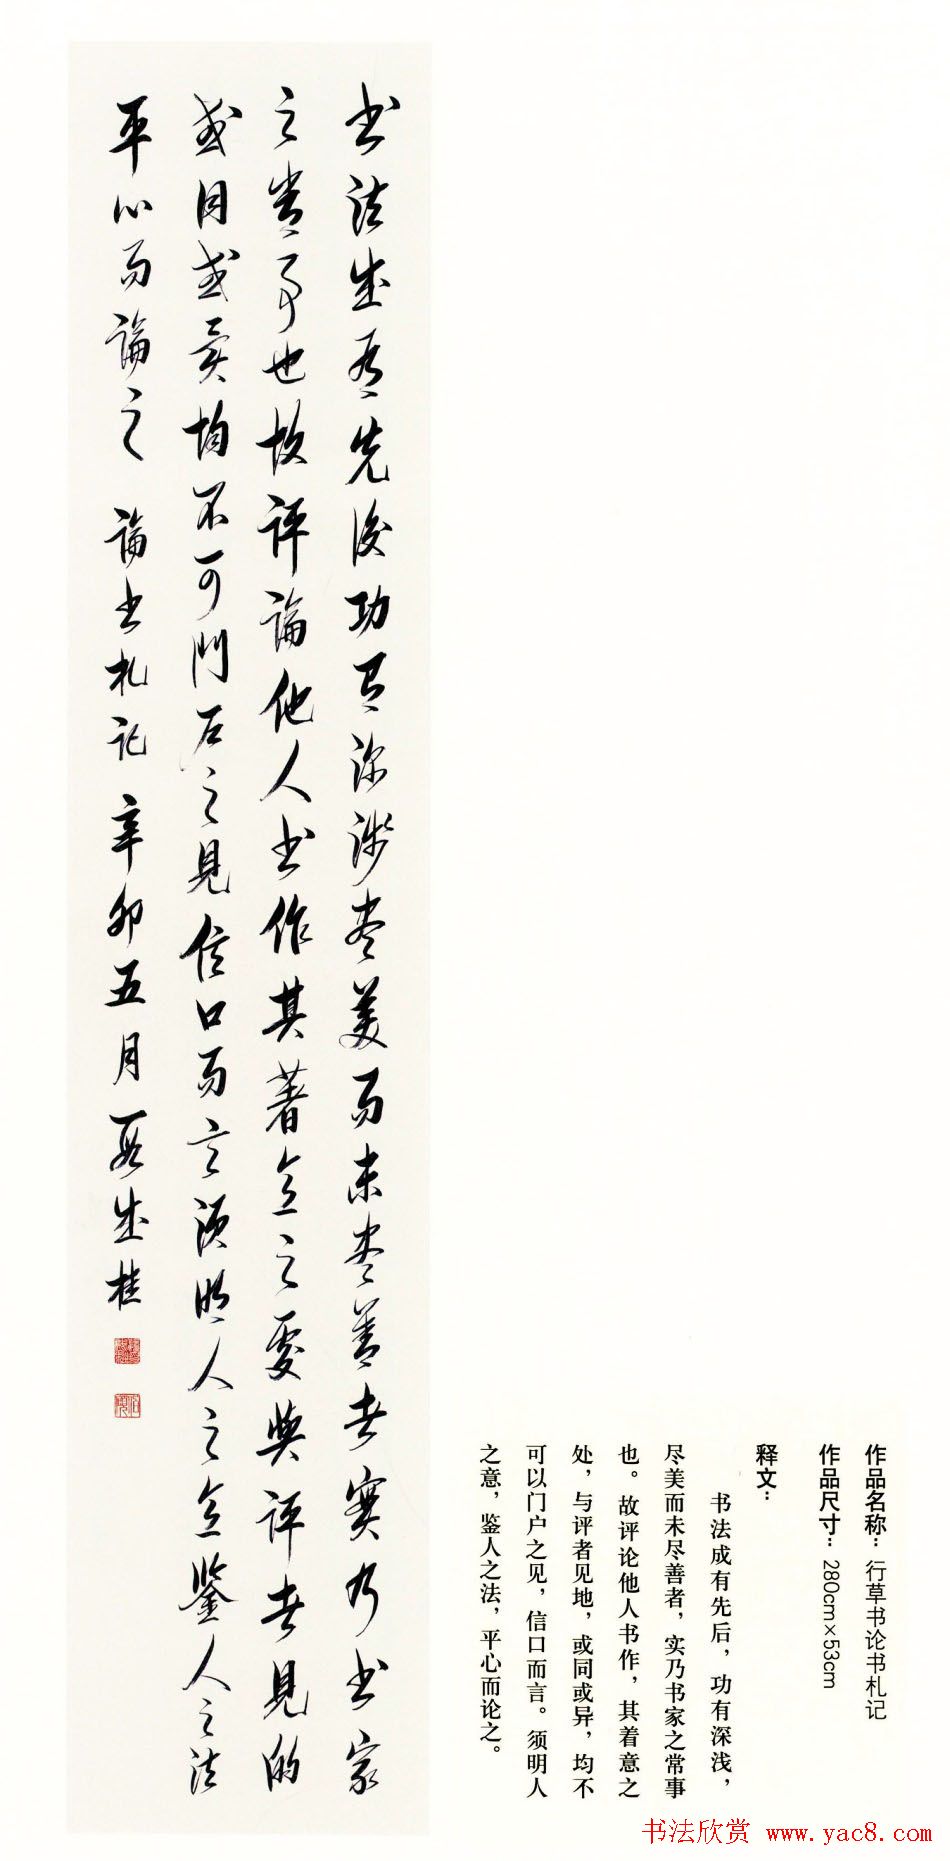 书法成有先後功有深淺尽美而未尽善者實乃书家
之常事也故評論他人书作其著意之處與評者見地
或同或異均不可門户之見信口而言須明人之意鑒人之法
平心而論之 論书札記 辛卯五月 段成桂
作品名称：行草书论书札记
作品尺寸：280cm×53cm
释文：
书法成有先后，功有深浅，
尽美而未尽善者，实乃书家之常事
也。故评论他人书作，其着意之
处，与评者见地，或同或异，均不
可以门户之见，信口而言。须明人
之意，鉴人之法，平心而论之。
书法欣赏 www.yac8.com